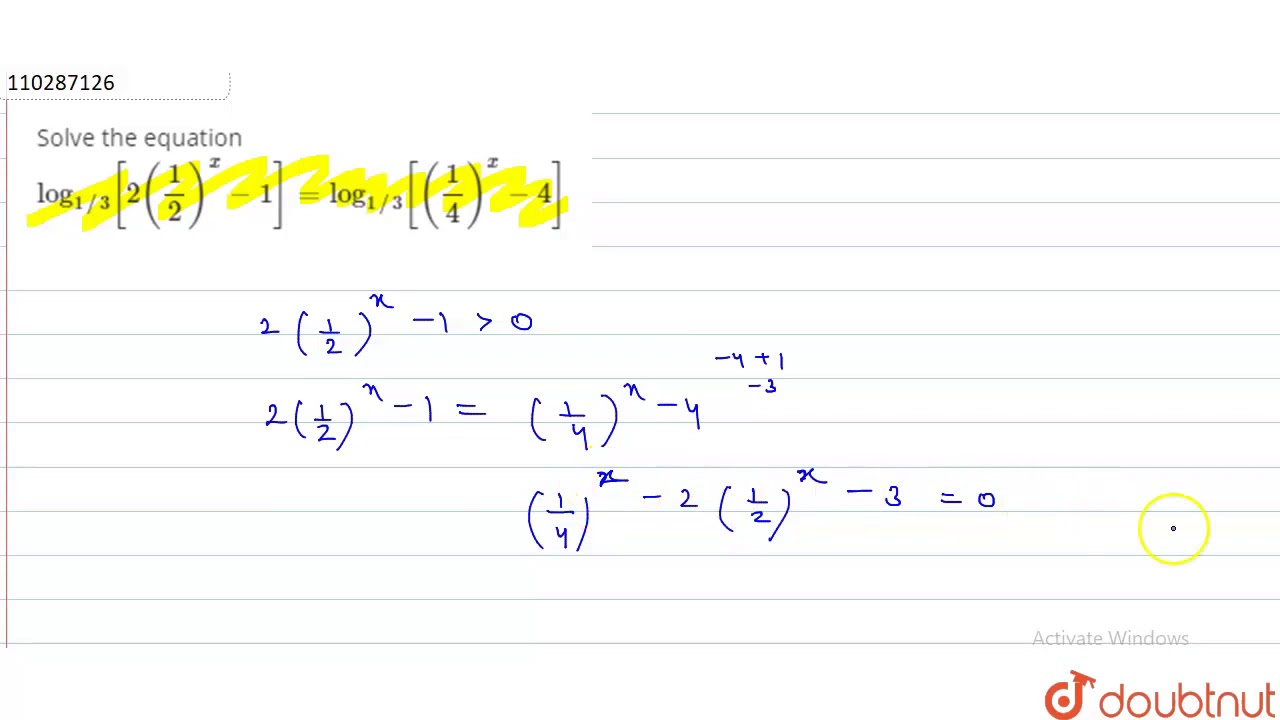 110287126
Solve the equation
log_{1/3}[2(1/2)^x − 1] = log_{1/3}[(1/4)^x − 4]
2(1/2)^x − 1 > 0
−4 + 1
−3
2(1/2)^x − 1 = (1/4)^x − 4
(1/4)^x − 2(1/2)^x − 3 = 0
Activate Windows
doubtnut